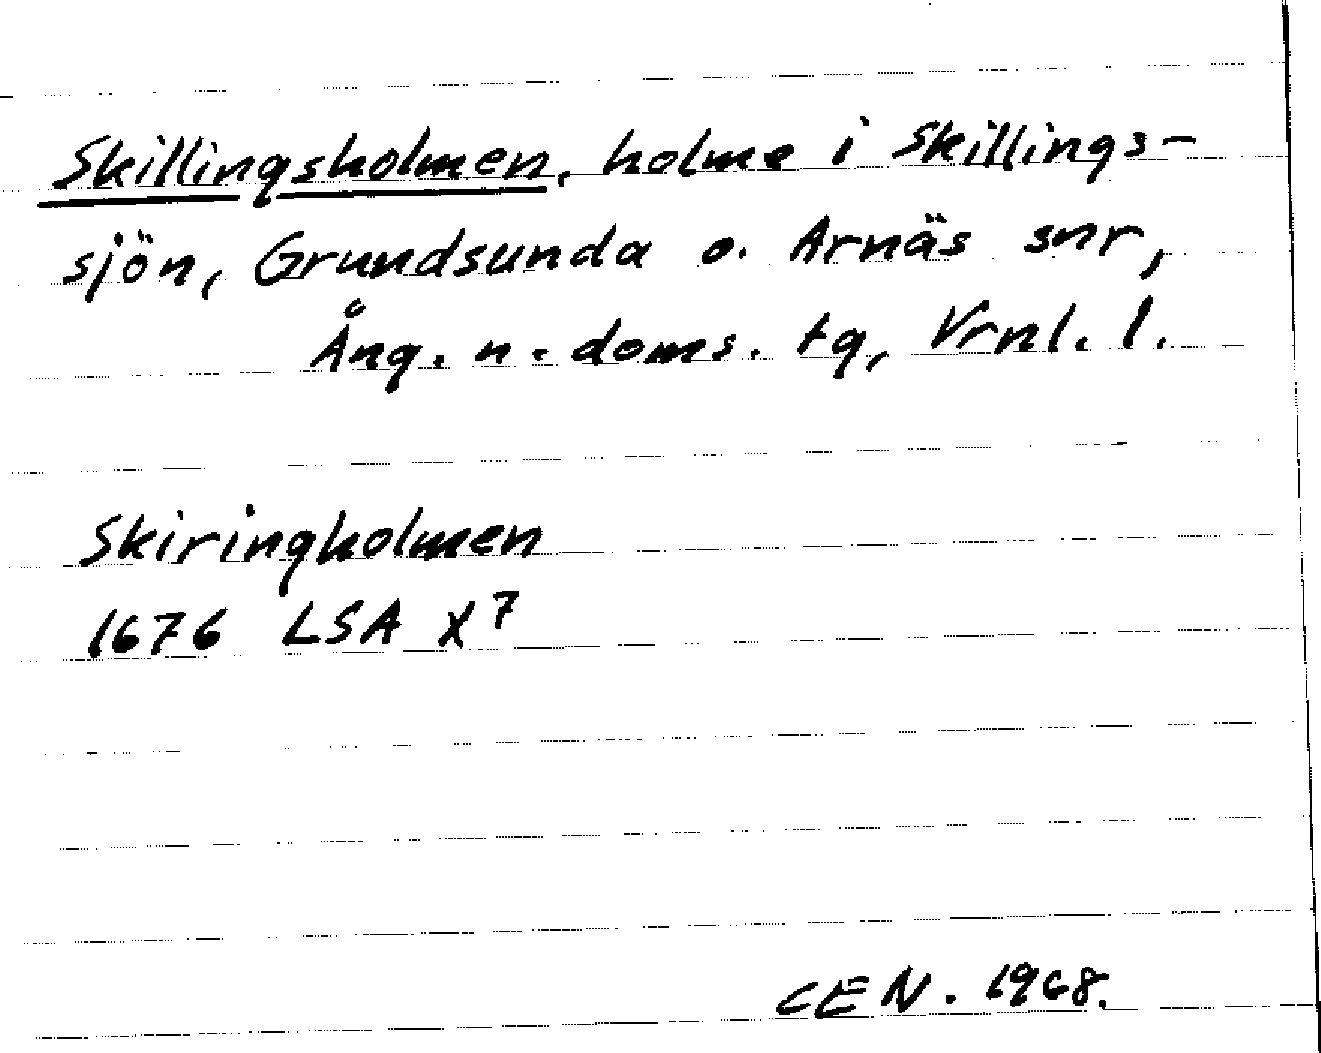 Skillingsholmen, holme i Skillings-
sjön, Grundsunda o. Arnäs snr,
Ång. n. doms. tg, Vrnl. l.
Skiringholmen
1676 LSA X7
CEN. 1968.